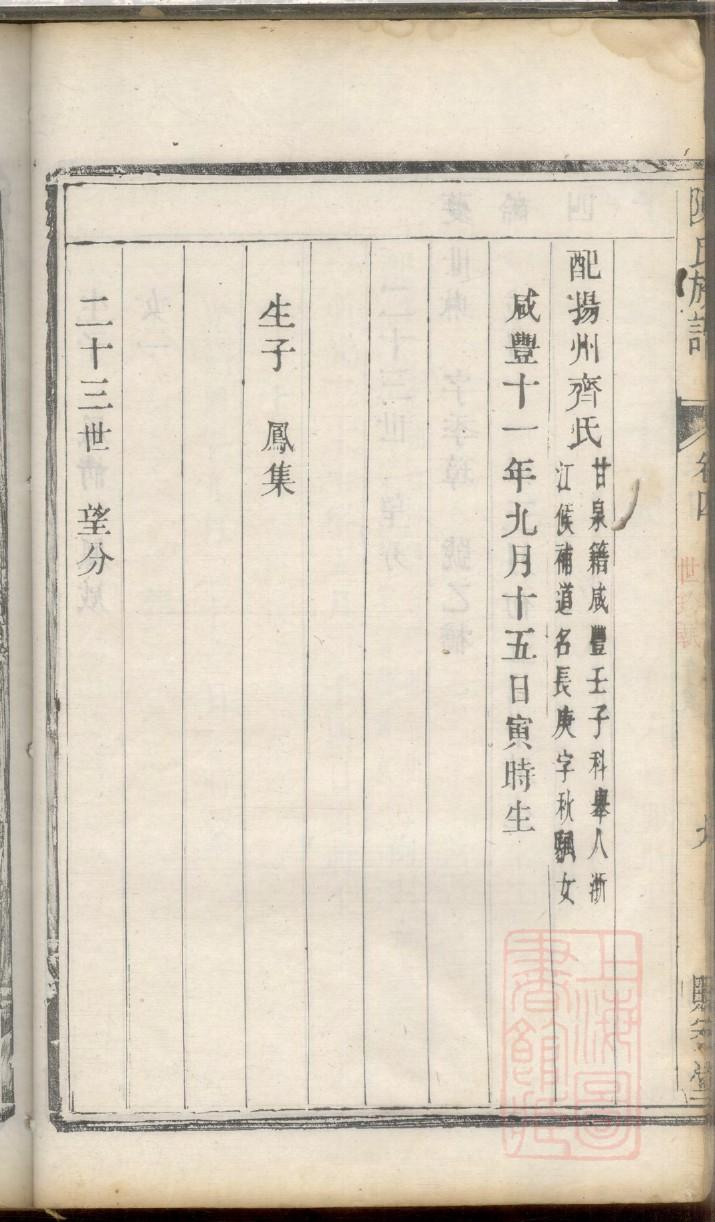 陳氏族譜
卷四
九
配揚州齊氏甘泉籍咸豐壬子科舉人浙
江候補道名長庚字秋颿女
咸豐十一年九月十五日寅時生
生子 鳳集
二十三世 望分
上海圖
書館藏